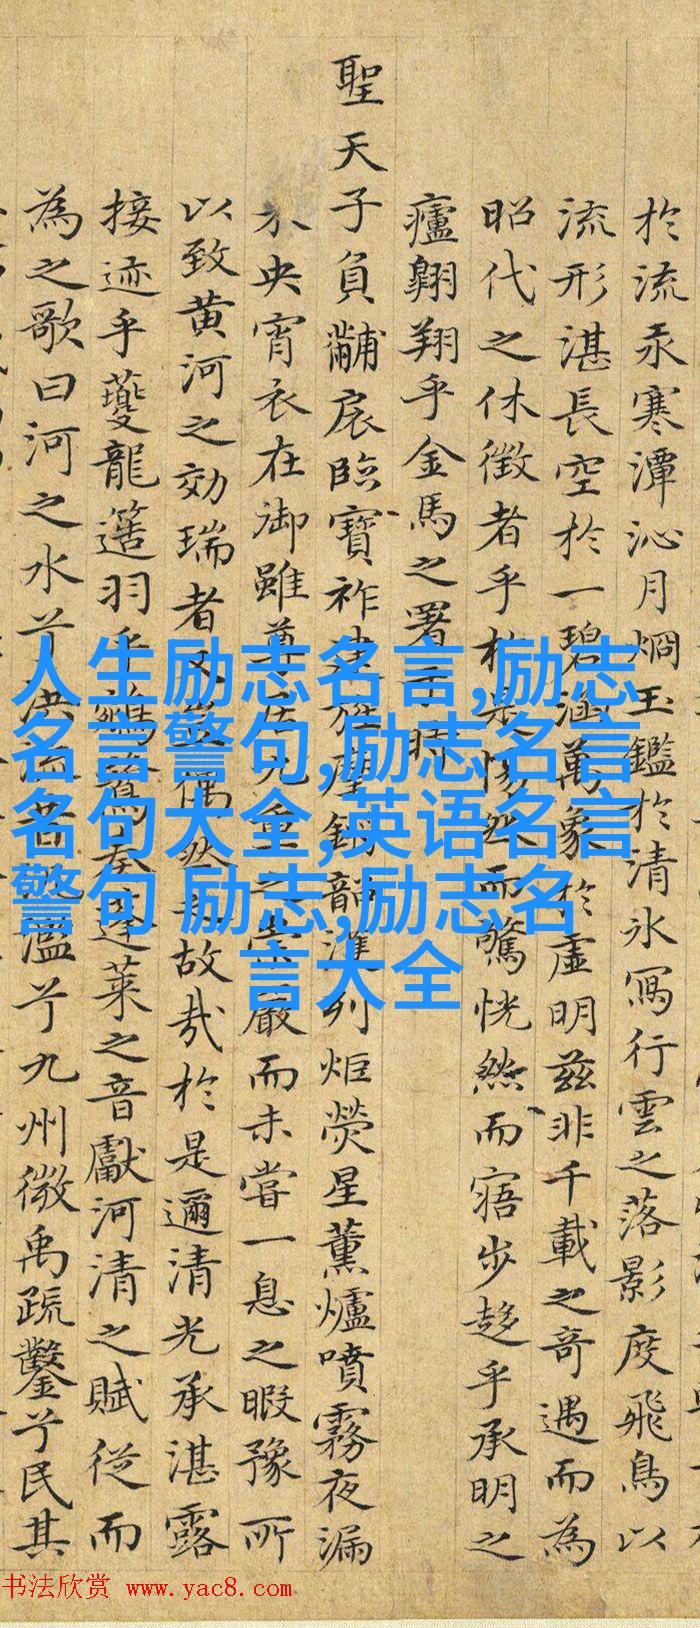 人生励志名言,励志
名言警句,励志名言
名句大全,英语名言
警句 励志,励志名
言大全
於流汞寒潭沁月烱玉鑑於清氷寫行雲之落影度飛鳥以
流形湛長空於一碧涵萬象於虛明兹非千載之奇遇而為
昭代之休徵者乎於是惕然而驚恍然而寤步趍乎承明之
廬翺翔乎金馬之署于時
聖天子負黼扆臨寶祚建韶列炬熒星薰爐噴霧夜漏
未央宵衣在御雖尊居九重之崇嚴而未嘗一息之暇豫所
以致黄河之効瑞者又豈偶然之故哉於是邇清光承湛露
接迹乎夔龍簉羽乎鵷鷺奏蓬萊之音獻河清之賦從而
為之歌曰河之水兮洪流昔濫兮九州微禹疏鑿兮民其
书法欣赏 www.yac8.com